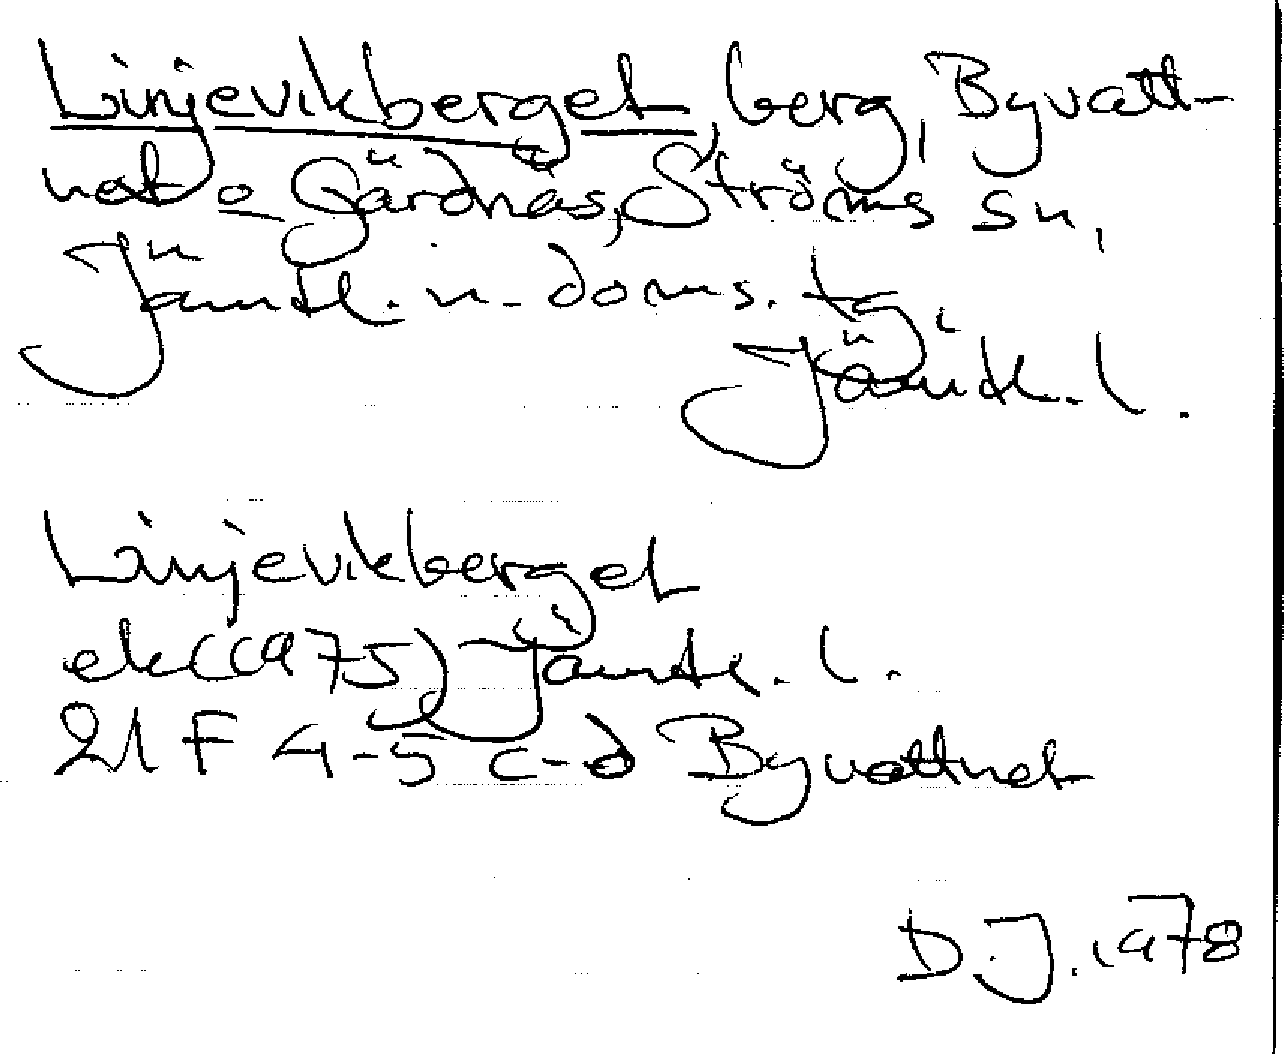 Linjevikberget, berg, Byvatt-
net o Gärdnäs, Ströms sn,
Jämtl. n. doms. tg
Jämtl. l.
Linjevikberget
ek (1975) Jämtl. l.
21 F 4-5 c-d Byvattnet
D.J. 1978